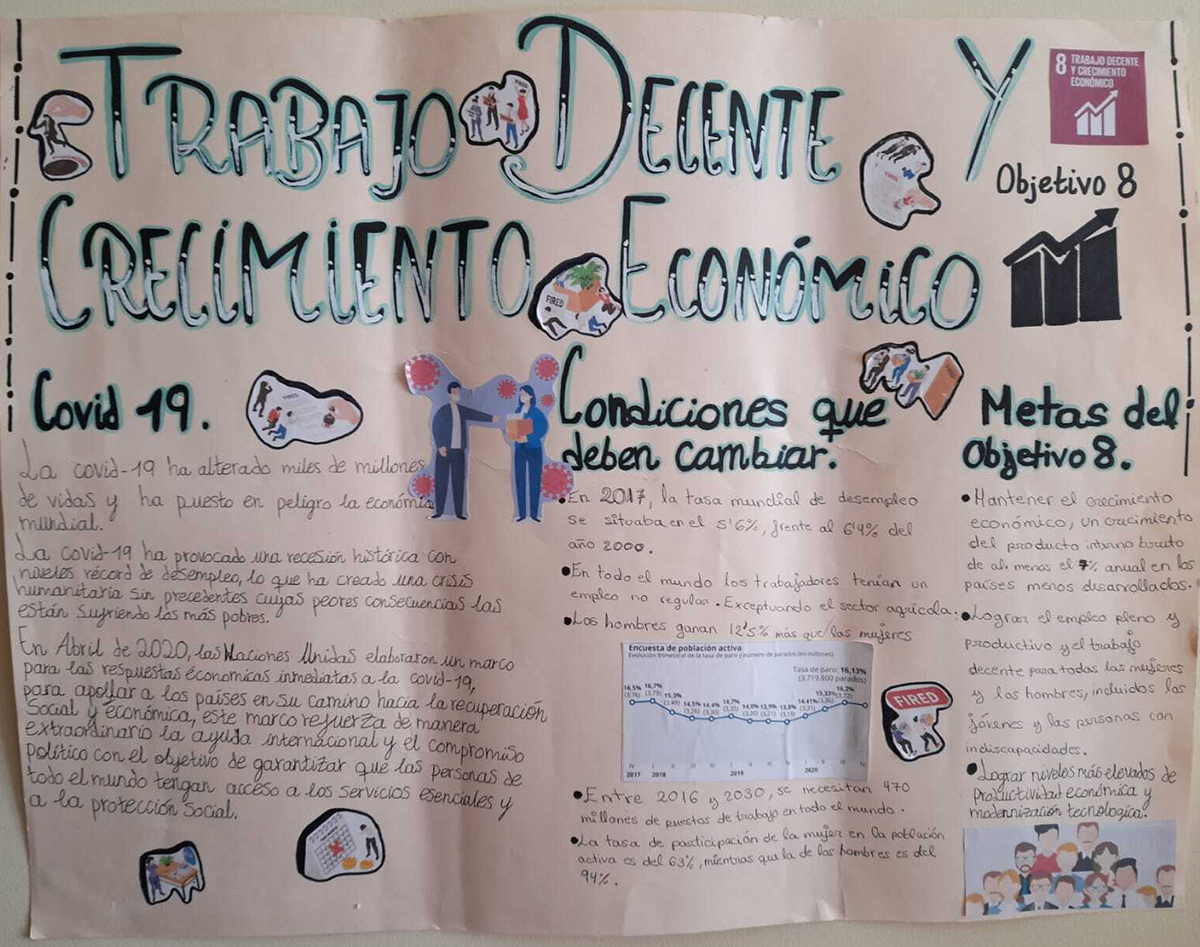 TRABAJO DECENTE Y
CRECIMIENTO ECONÓMICO
8 TRABAJO DECENTE
Y CRECIMIENTO
ECONÓMICO
Objetivo 8
FIRED
Covid 19.
La covid-19 ha alterado miles de millones
de vidas y ha puesto en peligro la economía
mundial.
La covid-19 ha provocado una recesión histórica con
niveles récord de desempleo, lo que ha creado una crisis
humanitaria sin precedentes cuyas peores consecuencias las
están sufriendo los más pobres.
En Abril de 2020, las Naciones Unidas elaboraron un marco
para las respuestas económicas inmediatas a la covid-19,
para apollar a los países en su camino hacia la recuperación
Social y económica, este marco refuerza de manera
extraordinario la ayuda internacional y el compromiso
político con el objetivo de garantizar que las personas de
todo el mundo tengan acceso a los servicios esenciales y
a la protección Social.
Condiciones que
deben cambiar.
•En 2017, la tasa mundial de desempleo
se situaba en el 5'6%, frente al 6'4% del
año 2000.
•En todo el mundo los trabajadores tenían un
empleo no regular. Exceptuando el sector agrícola.
•Los hombres ganan 12'5% más que las mujeres
Encuesta de población activa
Evolución trimestral de la tasa de paro y número de parados (en millones)
Tasa de paro: 16,13%
(3.719.800 parados)
16,5% 16,7% 15,3% 14,5% 14,4% 14,7% 14,0% 13,9% 13,8% 14,41% 15,33% 16,2%
(3,76) (3,79) (3,49) (3,26) (3,30) (3,35) (3,20) (3,21) (3,19) (3,31) (3,36) (3,72)
2017 2018 2019 2020
FIRED
•Entre 2016 y 2030, se necesitan 470
millones de puestos de trabajo en todo el mundo.
•La tasa de participación de la mujer en la población
activa es del 63%, mientras que la de los hombres es del
94%.
Metas del
Objetivo 8.
•Mantener el crecimiento
económico, un crecimiento
del producto interno bruto
de al menos el 7% anual en los
países menos desarrollados.
•Lograr el empleo pleno y
productivo y el trabajo
decente para todas las mujeres
y los hombres, incluidos los
jóvenes y las personas con
indiscapacidades.
•Lograr niveles más elevados de
Productividad económica y
modernización tecnológica.